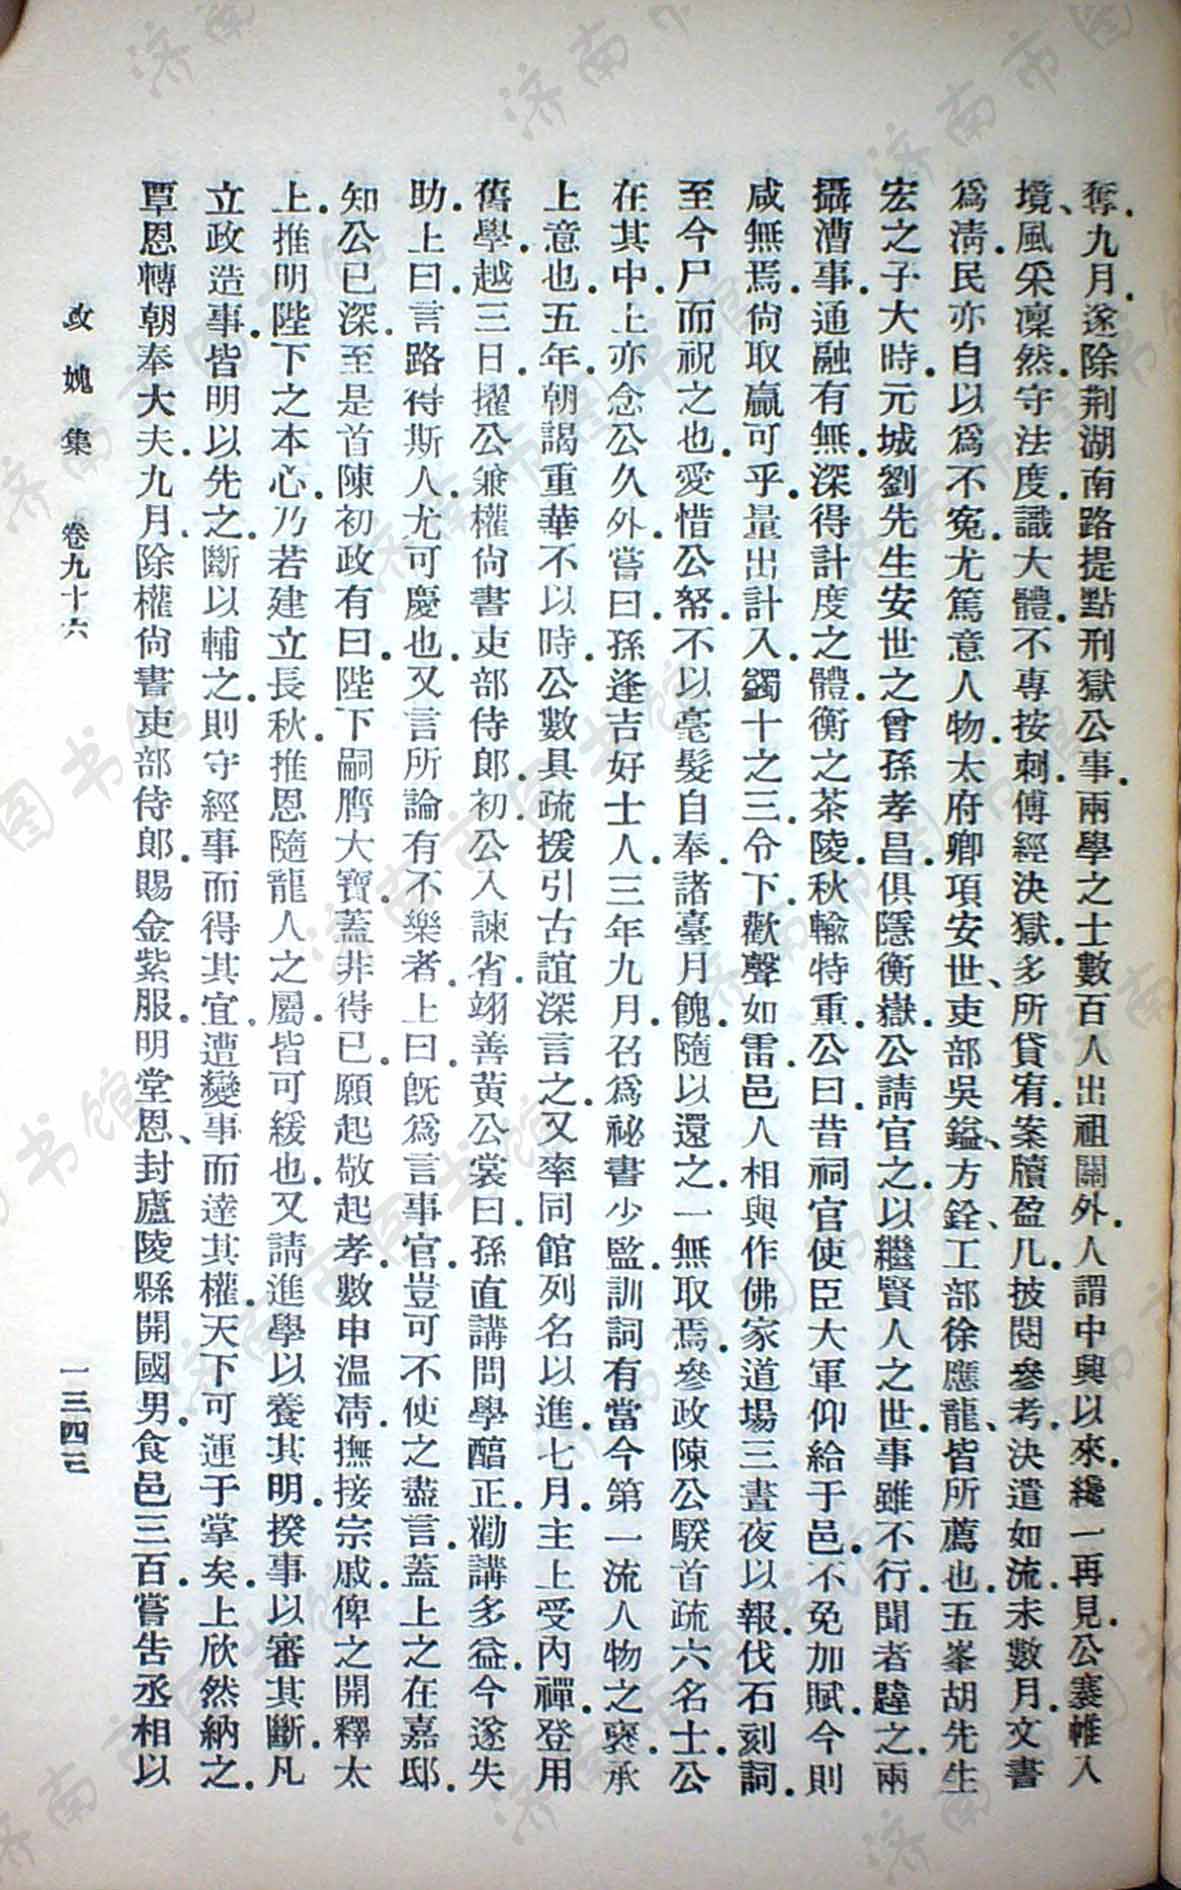 奪。九月。遂除荆湖南路提點刑獄公事。兩學之士數百人出祖關外。人謂中興以來。纔一再見。公褰帷入
境、風采凜然。守法度。識大體。不專按刺。傅經決獄。多所貸宥。案牘盈几。披閱參考。決遣如流。未數月。文書
爲淸。民亦自以爲不寃。尤篤意人物。太府卿項安世、吏部吳鎰、方銓、工部徐應龍、皆所薦也。五峯胡先生
宏之子大時。元城劉先生安世之曾孫孝昌。俱隱衡嶽。公請官之。以繼賢人之世。事雖不行。聞者韙之。兩
攝漕事。通融有無。深得計度之體。衡之茶陵。秋輸特重。公曰。昔祠官使臣大軍仰給于邑。不免加賦。今則
咸無焉。尙取贏可乎。量出計入。蠲十之三。令下。歡聲如雷。邑人相與作佛家道場三晝夜以報。伐石刻詞。
至今尸而祝之也。愛惜公帑。不以毫髮自奉。諸臺月餽。隨以還之。一無取焉。參政陳公騤首疏六名士。公
在其中。上亦念公久外。嘗曰。孫逢吉好士人。三年九月。召爲祕書少監。訓詞有當今第一流人物之褒。承
上意也。五年。朝謁重華不以時。公數具疏。援引古誼深言之。又率同館列名以進。七月。主上受內禪。登用
舊學。越三日。擢公兼權尙書吏部侍郎。初。公入諫省。翊善黃公裳曰。孫直講問學醇正。勸講多益。今遂失
助。上曰。言路得斯人。尤可慶也。又言所論有不樂者。上曰。旣爲言事官。豈可不使之盡言。蓋上之在嘉邸。
知公已深。至是首陳初政有曰。陛下嗣膺大寶。蓋非得已。願起敬起孝。數申溫凊。撫接宗戚。俾之開釋太
上。推明陛下之本心。乃若建立長秋。推恩隨龍人之屬。皆可緩也。又請進學以養其明。揆事以審其斷。凡
立政造事。皆明以先之。斷以輔之。則守經事而得其宜。遭變事而達其權。天下可運于掌矣。上欣然納之。
覃恩轉朝奉大夫。九月。除權尙書吏部侍郎。賜金紫服。明堂恩、封廬陵縣開國男。食邑三百。嘗吿丞相以
攻媿集 卷九十六 一三四三